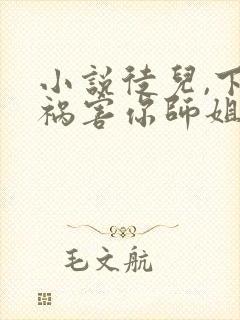 小説徒兒,下
禍害你師姐
毛文航